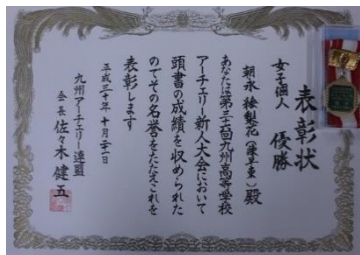 表彰状
女子個人 優勝
朝永 殿
あなたは 九州高等学校
アーチェリー新人大会において
頭書の成績を収められた
のでその名誉をたたえこれを
表彰します
平成三十年 十月
九州アーチェリー連盟
会長 佐々木 健五